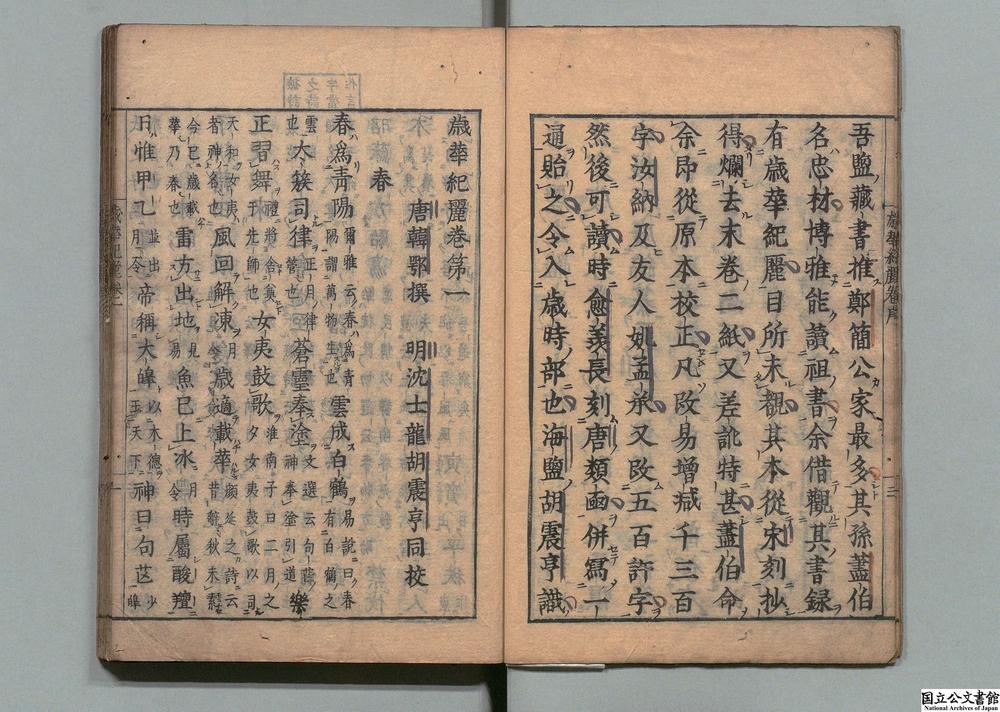 吾鹽藏書推鄭簡公家最多其孫蓋伯
名忠材博雅能讀祖書余借觀其書錄
有歲華紀麗目所未覩其本從宋刻抄
得爛去末卷二紙又差訛特甚蓋伯命
余即從原本校正凡改易增減千三百
字汝納及友人姚孟承又改五百許字
然後可讀時愈羨長刻唐類函併寫一
通貽之令入歲時部也海鹽胡震亨識
歲華紀麗卷序
三
歲華紀麗卷第一
唐韓鄂撰 明沈士龍胡震亨同校
春
春爲青陽爾雅云春爲青陽謂萬物生也雲成白鶴易說曰春有白鶴之
雲也大簇司律正月律管也蒼靈奉塗文選云句蘿神奉塗引道樂
正習舞禮將舍奠于先師女夷鼓歌淮南子曰二月之夕女夷鼓歌以司
天和女夷者神名也風回解凍月令歲適載華顏延之詩云昔辭秋未素
今巳歲載華乃春也雷方出地見易魚巳上氷月令時屬酸羶
日惟甲乙並出月令帝稱大皡以木德王天下神曰句芒少皡
歲華紀麗卷一
一
国立公文書館
National Archives of Japan